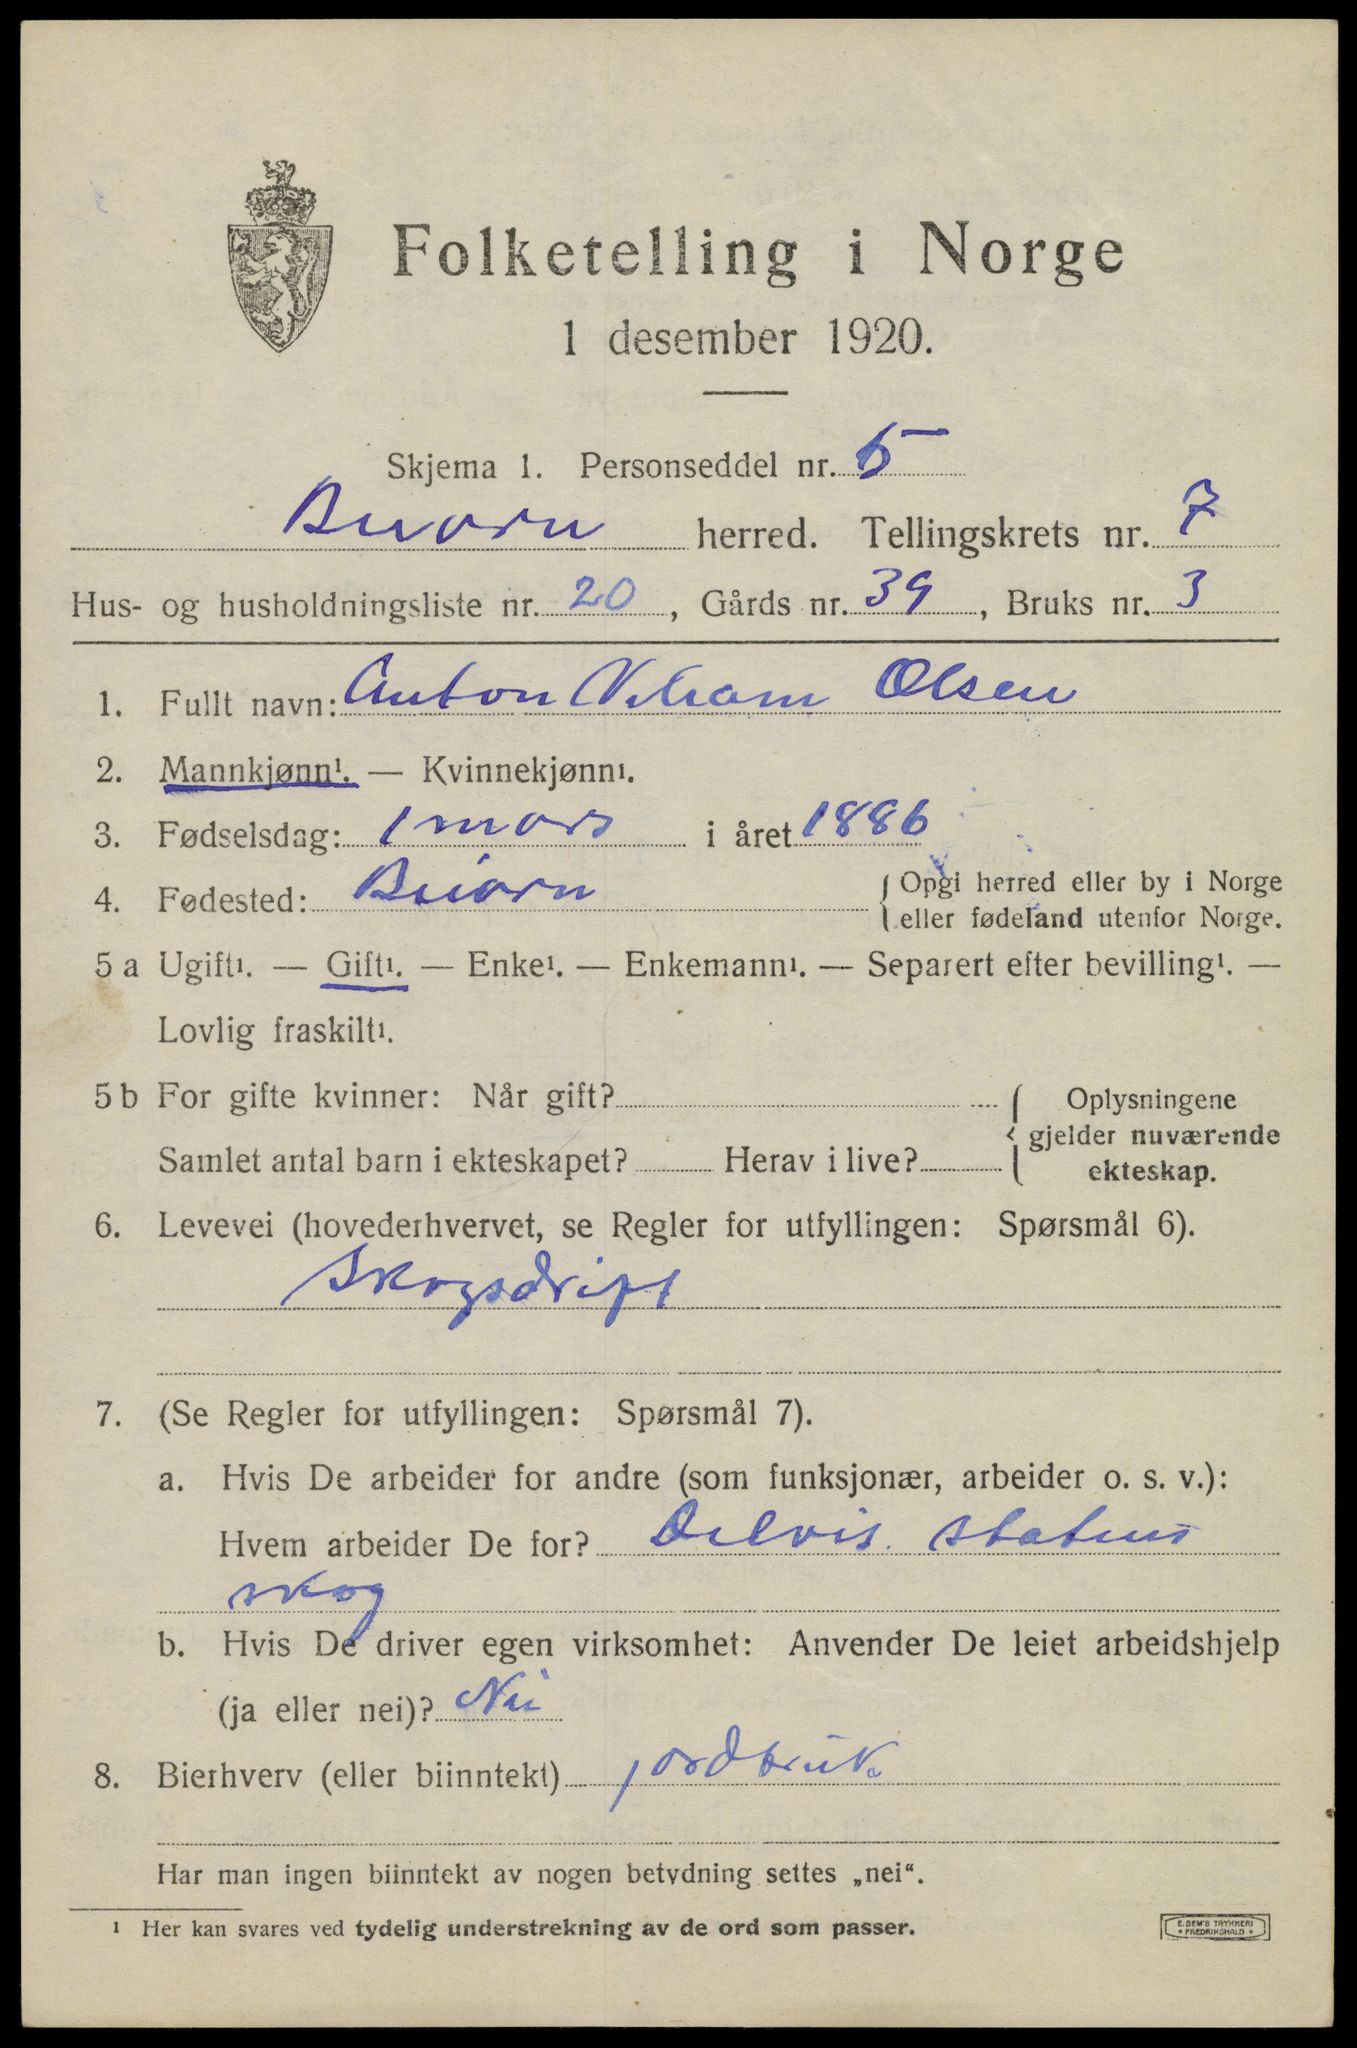 Folketelling i Norge
1 desember 1920.
Skjema 1. Personseddel nr. 5
Beiarn herred. Tellingskrets nr. 7
Hus- og husholdningsliste nr. 20, Gårds nr. 39, Bruks nr. 3
1. Fullt navn: Anton Olsen
2. Mannkjønn¹. — Kvinnekjønn¹.
3. Fødselsdag: 1 mars i året 1886
4. Fødested: Beiarn { Opgi herred eller by i Norge
eller fødeland utenfor Norge.
5 a Ugift¹. — Gift¹. — Enke¹. — Enkemann¹. — Separert efter bevilling¹. —
Lovlig fraskilt¹.
5 b For gifte kvinner: Når gift? { Oplysningene
gjelder nuværende
Samlet antal barn i ekteskapet? Herav i live? ekteskap.
6. Levevei (hovederhvervet, se Regler for utfyllingen: Spørsmål 6).
Skogsdrift
7. (Se Regler for utfyllingen: Spørsmål 7).
a. Hvis De arbeider for andre (som funksjonær, arbeider o. s. v.):
Hvem arbeider De for? Delvis. statens
skog
b. Hvis De driver egen virksomhet: Anvender De leiet arbeidshjelp
(ja eller nei)? Nei
8. Bierhverv (eller biinntekt) jordbruk.
Har man ingen biinntekt av nogen betydning settes „nei“.
¹ Her kan svares ved tydelig understrekning av de ord som passer.
E. SEM'S TRYKKERI
• FREDRIKSHALD •